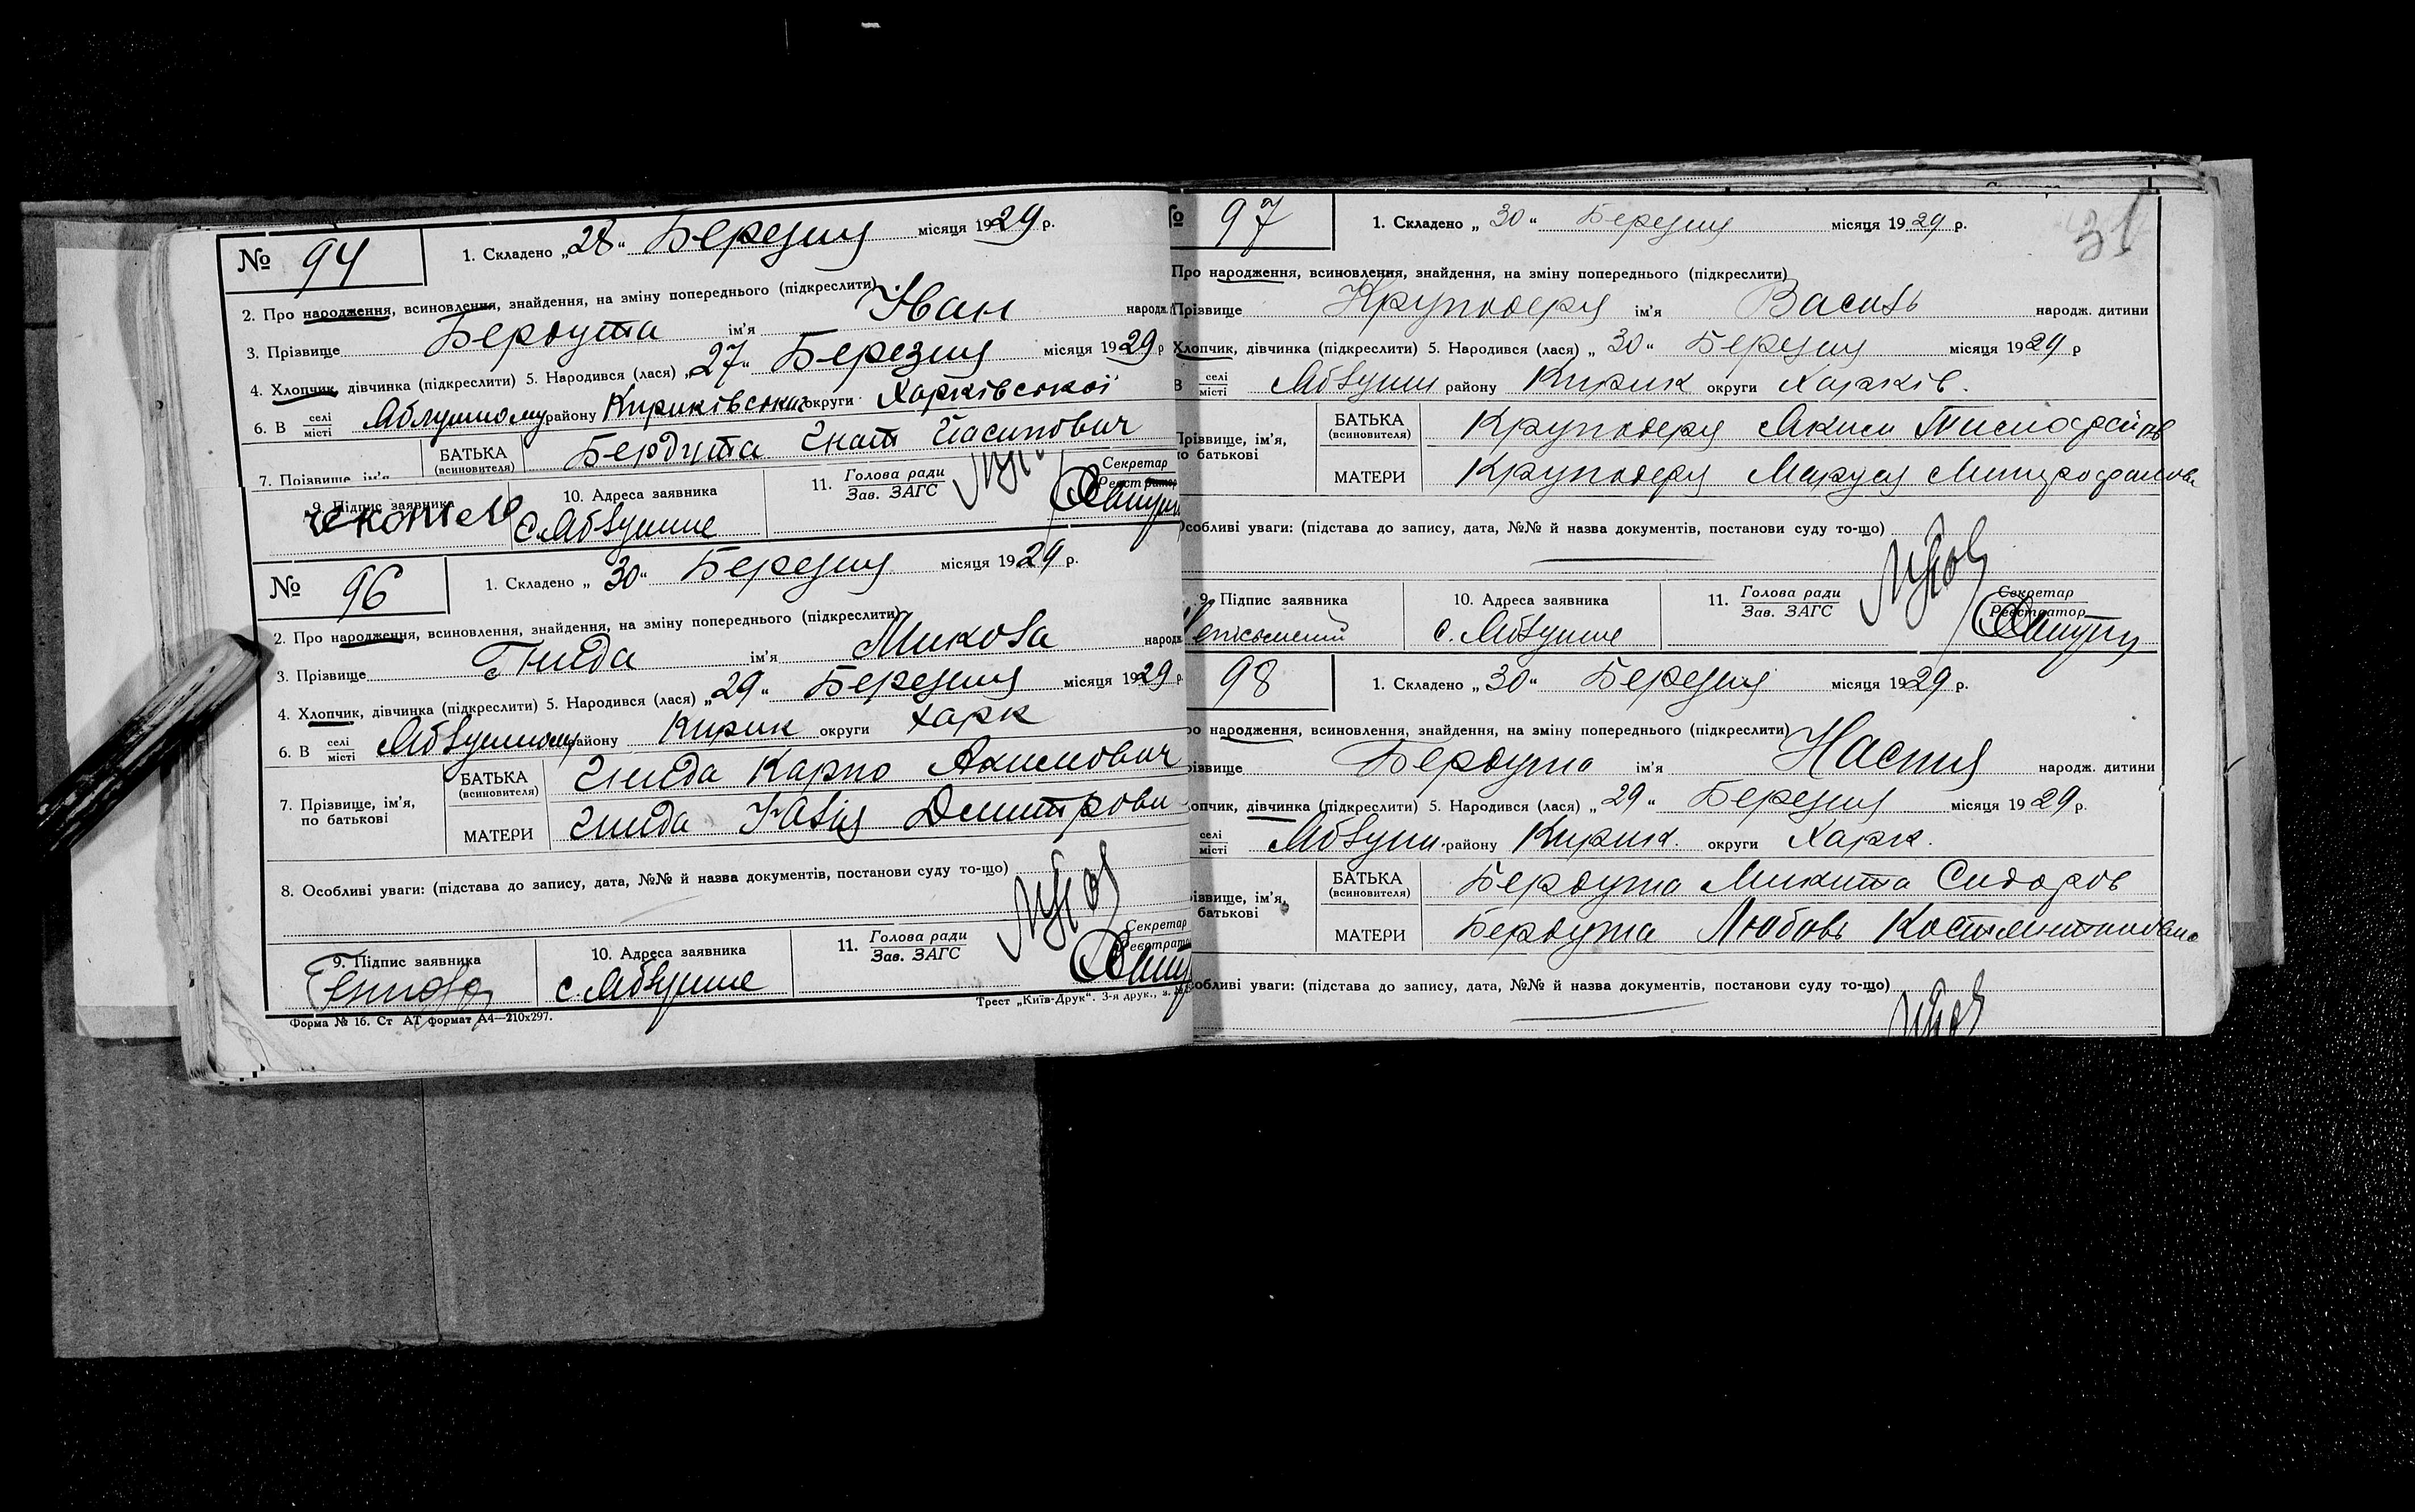 № 94
1. Складено „28“ Березня місяця 1929 р.
2. Про народження, всиновлення, знайдення, на зміну попереднього (підкреслити)
3. Прізвище Бердута ім'я Іван народж.
4. Хлопчик, дівчинка (підкреслити) 5. Народився (лася) „27“ Березня місяця 1929 р
6. В селі місті Яблушному району Кириківського округи Харківської
7. Прізвище, ім'я БАТЬКА (всиновителя) Бердута Гнат Йасипович
9. Підпис заявника
10. Адреса заявника с. Яблушне
11. Голова ради Зав. ЗАГС
Секретар Реєстратор
№ 96
1. Складено „30“ Березня місяця 1929 р.
2. Про народження, всиновлення, знайдення, на зміну попереднього (підкреслити)
3. Прізвище Гнида ім'я Микола народж
4. Хлопчик, дівчинка (підкреслити) 5. Народився (лася) „29“ Березня місяця 1929 р.
6. В селі місті Яблушному району Кирик округи Харк
7. Прізвище, ім'я, по батькові
БАТЬКА (всиновителя) Гнида Карпо Акимович
МАТЕРИ Гнида Юлія Дмитрови
8. Особливі уваги: (підстава до запису, дата, №№ й назва документів, постанови суду то-що)
9. Підпис заявника
10. Адреса заявника с. Яблушне
11. Голова ради Зав. ЗАГС
Секретар Реєстратор
Форма № 16. Ст АТ формат А4—210х297.
Трест „Київ-Друк“. 3-я друк., з.
31
№ 97
1. Складено „30“ Березня місяця 1929 р.
Про народження, всиновлення, знайдення, на зміну попереднього (підкреслити)
Прізвище Круподеря ім'я Василь народж. дитини
Хлопчик, дівчинка (підкреслити) 5. Народився (лася) „30“ Березня місяця 1929 р
В селі місті Яблушн району Кирик округи Харків.
Прізвище, ім'я, по батькові
БАТЬКА (всиновителя) Круподеря Яким
МАТЕРИ Круподеря Маруся Митрофанова
Особливі уваги: (підстава до запису, дата, №№ й назва документів, постанови суду то-що)
9. Підпис заявника
10. Адреса заявника с. Яблушне
11. Голова ради Зав. ЗАГС
Секретар Реєстратор
98
1. Складено „30“ Березня місяця 1929 р.
ро народження, всиновлення, знайдення, на зміну попереднього (підкреслити)
різвище Бердута ім'я Настя народж. дитини
опчик, дівчинка (підкреслити) 5. Народився (лася) „29“ Березня місяця 1929 р.
селі місті Яблушн. району Кирик. округи Харк.
різвище, ім'я, батькові
БАТЬКА (всиновителя) Бердута Микита Сидоров
МАТЕРИ Бердута Любовь Костянтиновна
собливі уваги: (підстава до запису, дата, №№ й назва документів, постанови суду то-що)